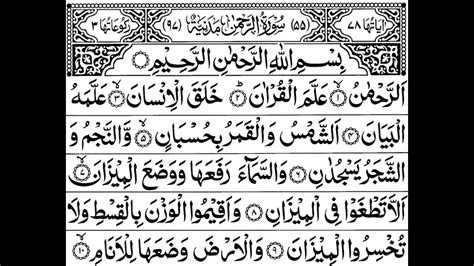 اٰیَاتُهَا ۷۸ (۵۵) سُوْرَةُ الرَّحْمٰنِ مَدَنِیَّةٌ (۹۷) رُكُوْعَاتُهَا ۳
بِسْمِ اللّٰهِ الرَّحْمٰنِ الرَّحِیْمِ
اَلرَّحْمٰنُ ۱ عَلَّمَ الْقُرْاٰنَ ۲ خَلَقَ الْاِنْسَانَ ۳ عَلَّمَهُ
الْبَیَانَ ۴ اَلشَّمْسُ وَالْقَمَرُ بِحُسْبَانٍ ۵ وَّالنَّجْمُ وَ
الشَّجَرُ یَسْجُدٰنِ ۶ وَالسَّمَآءَ رَفَعَهَا وَوَضَعَ الْمِیْزَانَ ۷
اَلَّا تَطْغَوْا فِی الْمِیْزَانِ ۸ وَاَقِیْمُوا الْوَزْنَ بِالْقِسْطِ وَلَا
تُخْسِرُوا الْمِیْزَانَ ۹ وَالْاَرْضَ وَضَعَهَا لِلْاَنَامِ ۱۰